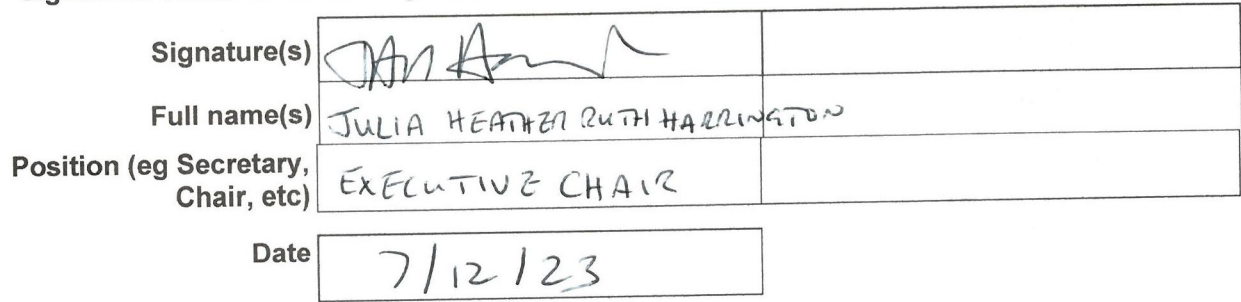 Signature(s)
Full name(s) JULIA HEATHER RUTH HARRINGTON
Position (eg Secretary, EXECUTIVE CHAIR
Chair, etc)
Date 7/12/23